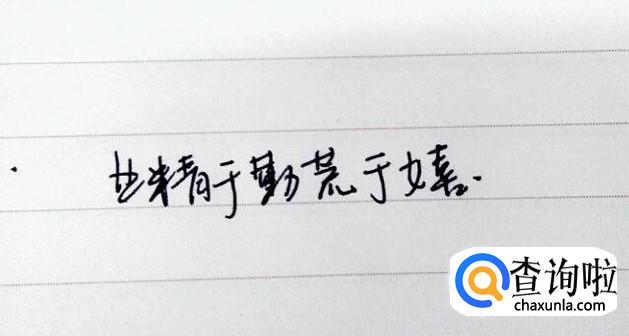 业精于勤荒于嬉.
查询啦
chaxunla.com